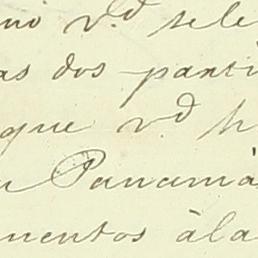 mo v.d tele
as dos parti
que v.d h
u Panamá
mentos á la